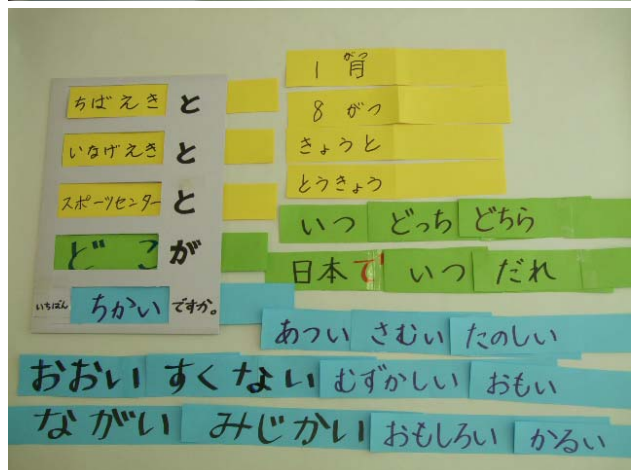 ちばえき と
いなげえき と
スポーツセンター と
どこ が
いちばん ちかい ですか。
がつ
1月
8がつ
きょうと
とうきょう
いつ どっち どちら
日本で いつ だれ
あつい さむい たのしい
おおい すくない むずかしい おもい
ながい みじかい おもしろい かるい